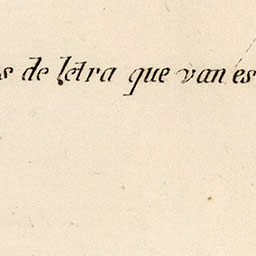 s de letra que van es